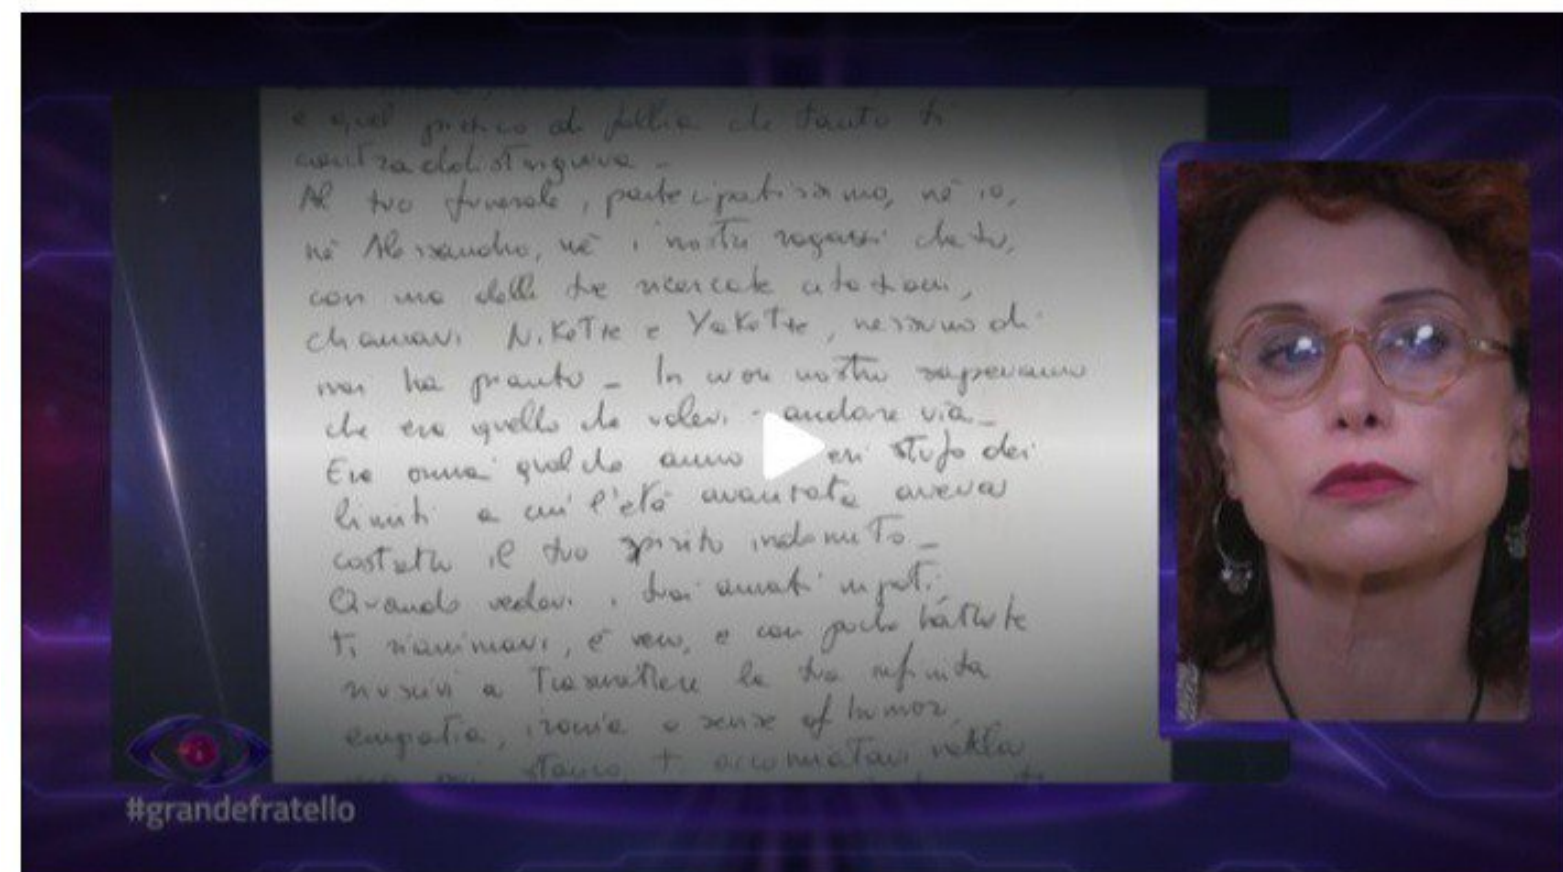 e quel pizzico di follia che tanto ti
contraddistingueva -
Al tuo funerale, partecipatissimo, né io,
né Alessandro, né i nostri ragazzi che tu,
con una delle tue ricercate citazioni,
chiamavi NiKoTze e YaKoTze, nessuno di
noi ha pianto - In cuor nostro sapevamo
che era quello che volevi - andare via -
Era ormai qualche anno eri stufo dei
limiti a cui l'età avanzata aveva
costretto il tuo spirito indomito -
Quando vedevi i tuoi amati nipoti,
ti rianimavi, è vero, e con poche battute
riuscivi a trasmettere la tua infinita
empatia, ironia e sense of humor,
stanco, ti accomiatavi nella
#grandefratello